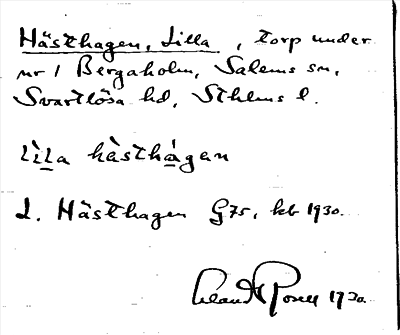 Hästhagen, Lilla, torp under
nr 1 Bergaholm, Salems sn,
Svartlösa hd, Sthlms l.
lìla hàsthágen
L. Hästhagen G75, kb 1930.
1930